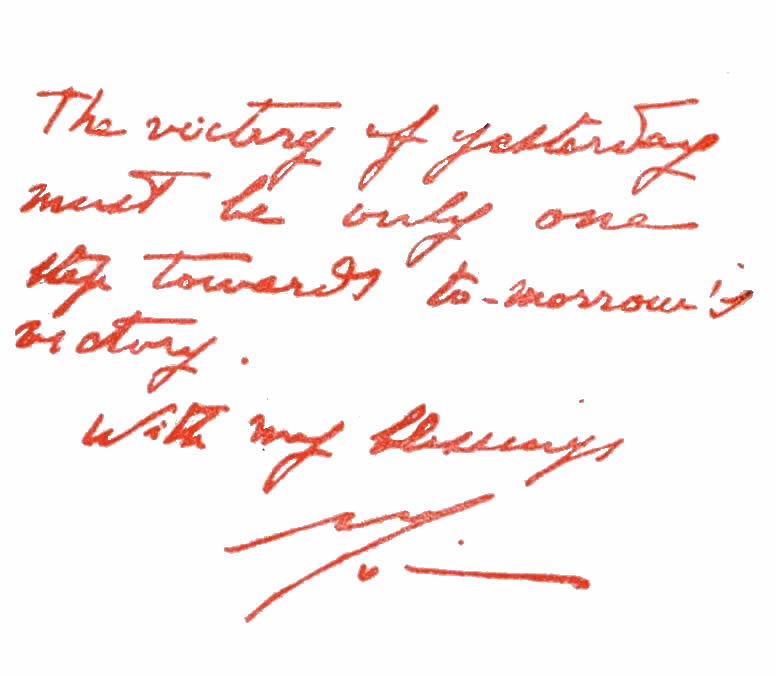 The victory of yesterday
must be only one
step towards to-morrow's
victory.
With my blessings